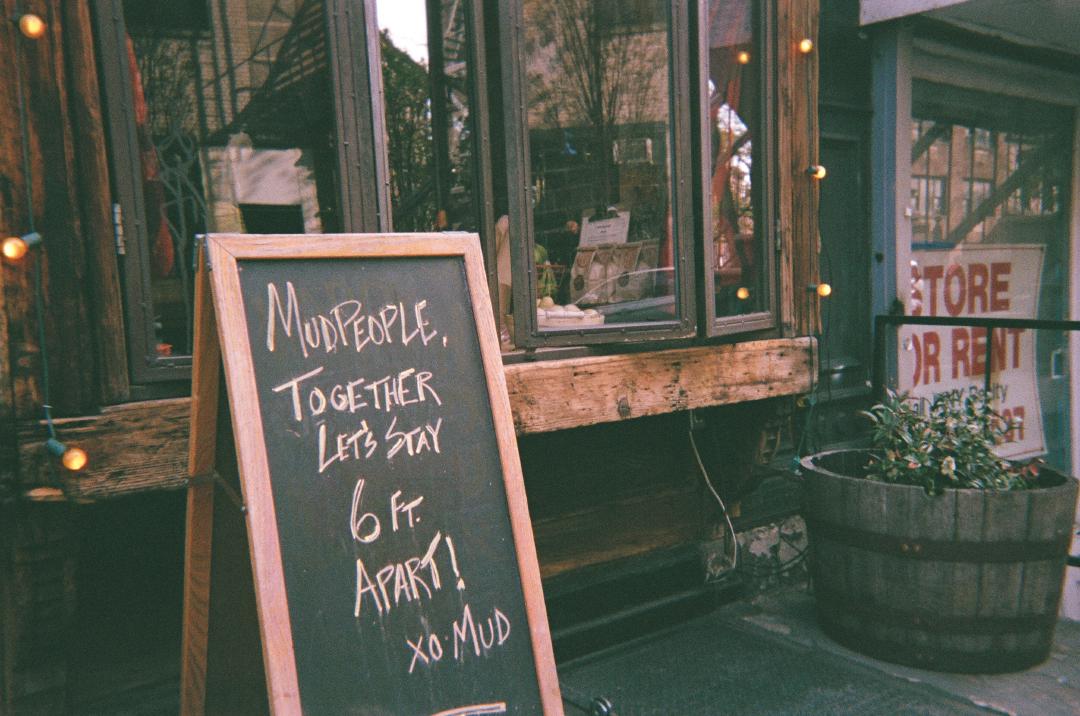 MUDPEOPLE,
TOGETHER
LET'S STAY
6 FT.
APART!
XO MUD
STORE
OR RENT